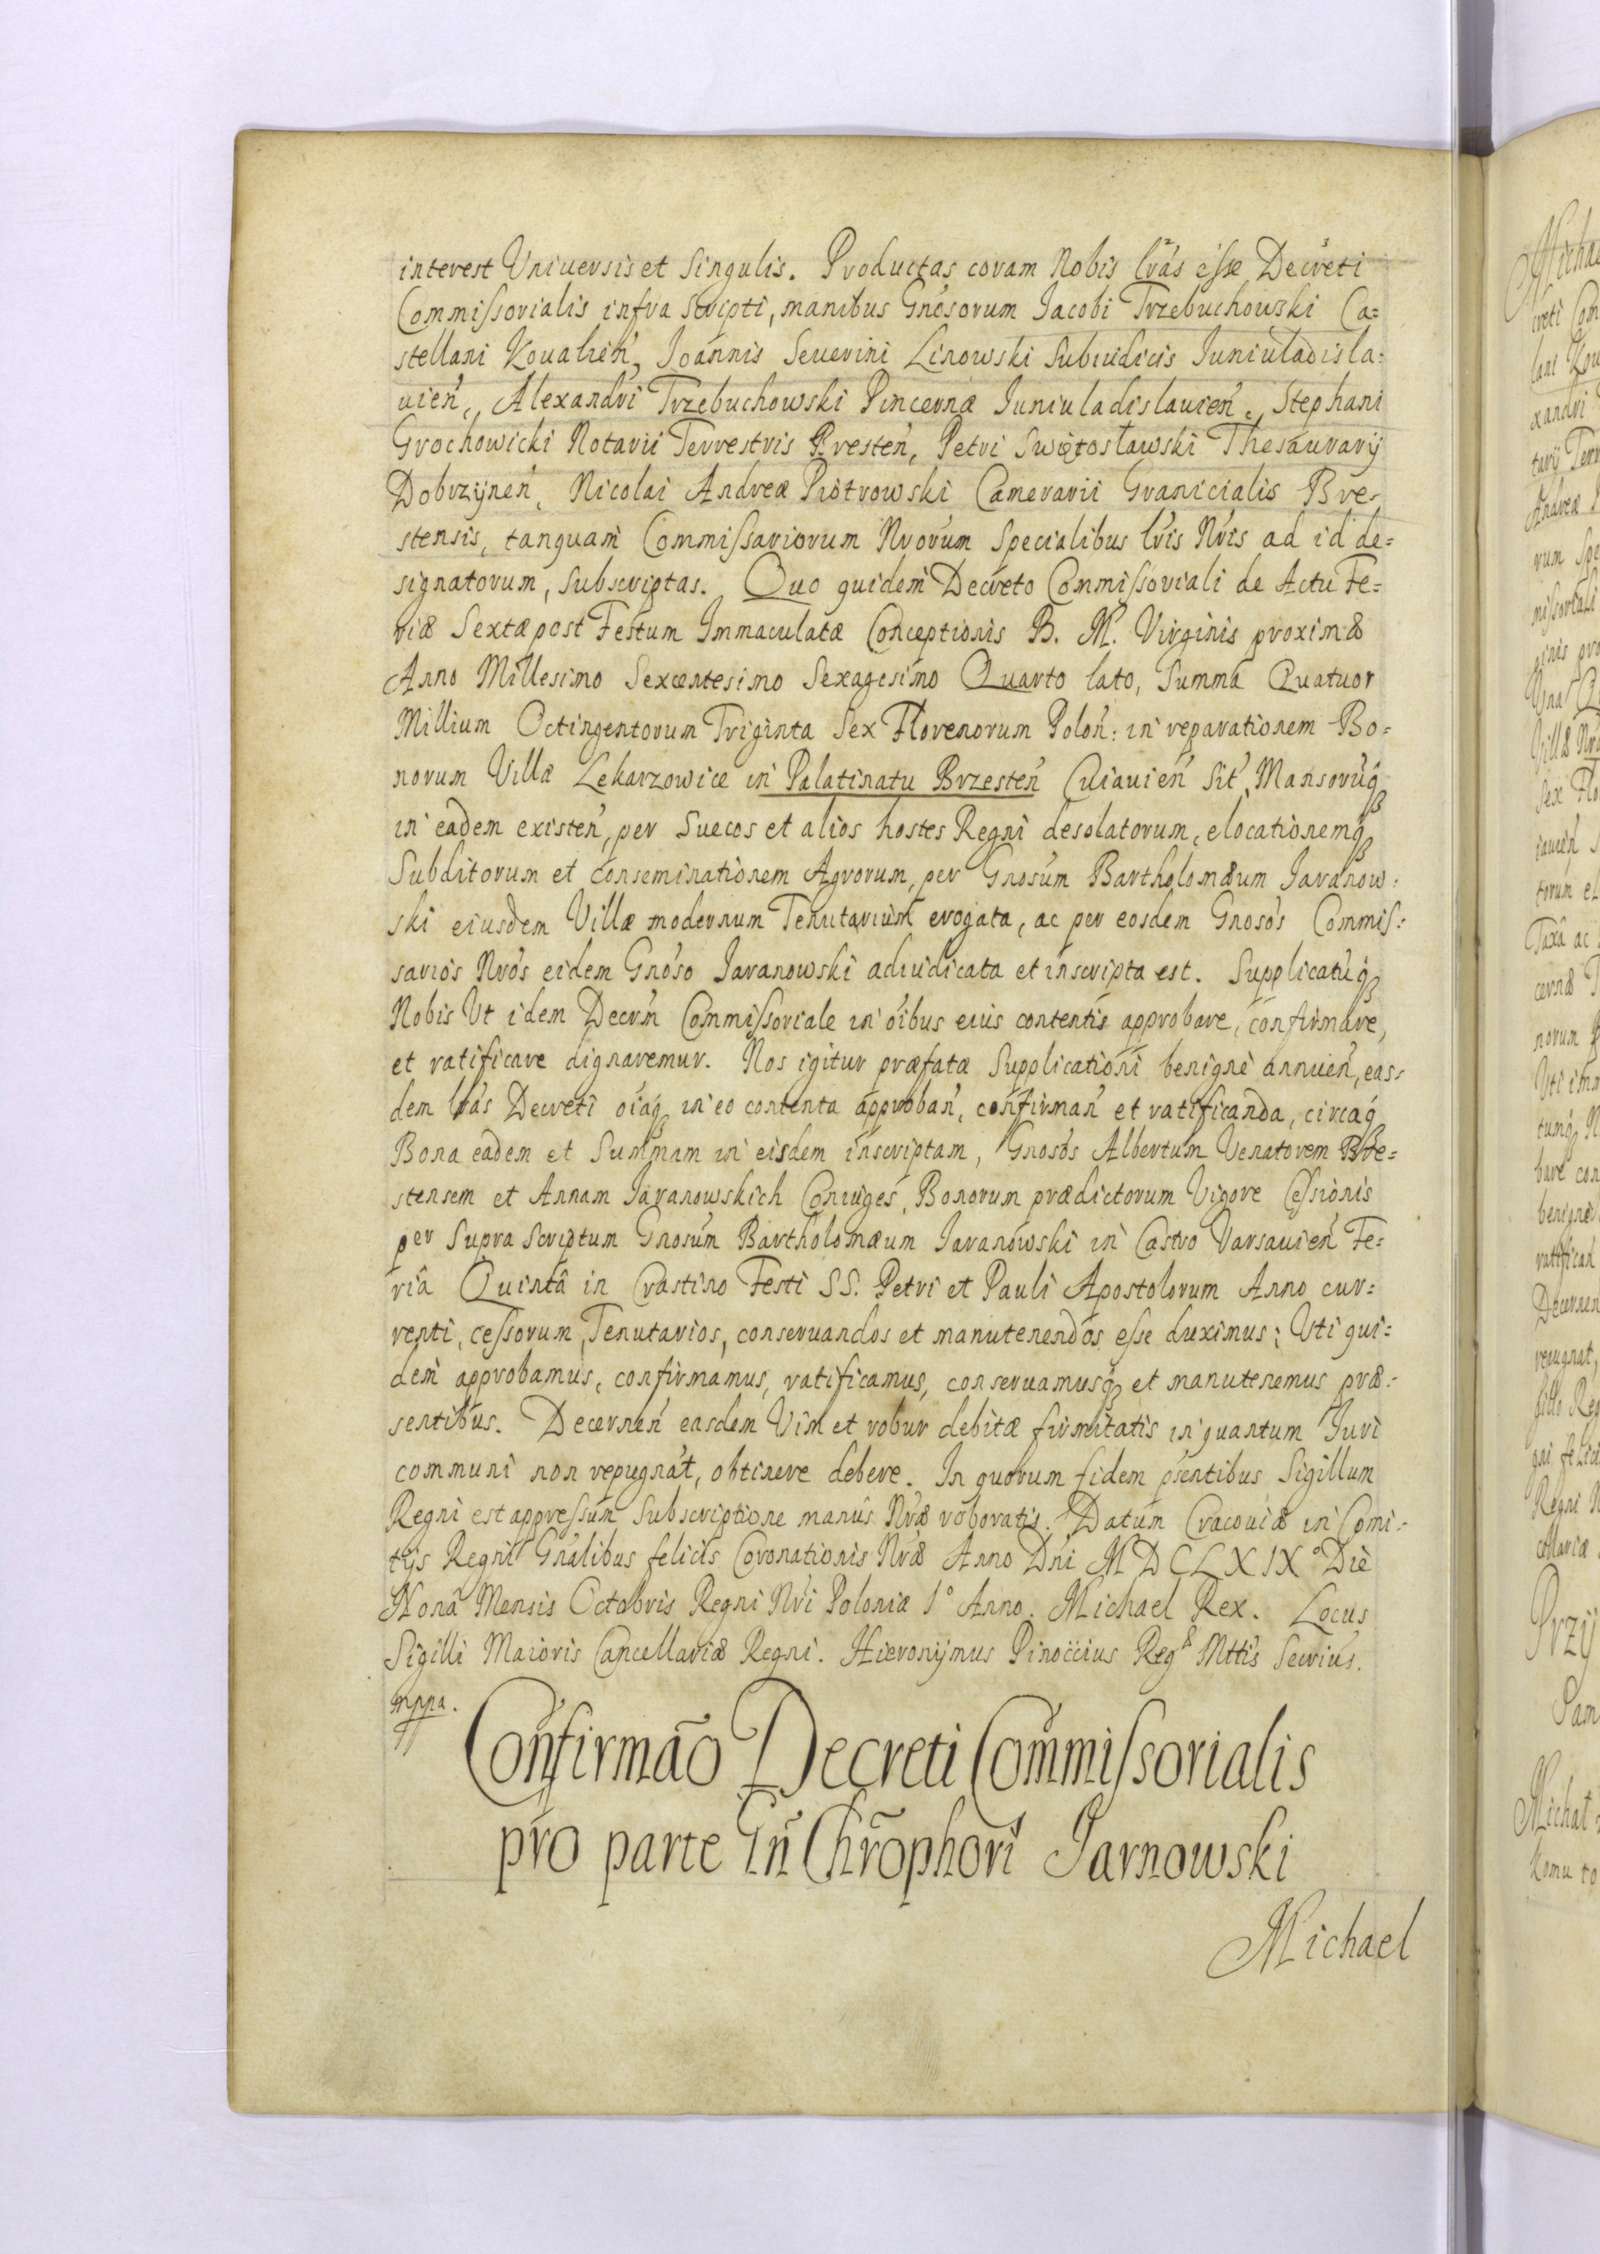 interest Vniuersis et Singulis. Productas coram Nobis lrãs esse Decreti
Commissorialis infra scripti, manibus Gnosorum Jacobi Trzebuchowski Ca=
stellani Koualien, Joannis Seuerini Linowski Subiudicis Iuniuladisla=
uien, Alexandri Trzebuchowski Pincernæ Iuniuladislauien., Stephani
Grochowicki Notarii Terrestris Bresten, Petri Swiętosławski Thesaurarij
Dobrzynen, Nicolai Andreæ Piotrowski Camerarii Granicialis Bre=
stensis, tanquam Commissariorum Nrorum Specialibus lris Nris ad id de=
signatorum, subscriptas. Quo quidem Decreto Commissoriali de Actu Fe=
riæ Sextæ post Festum Immaculatæ Conceptionis B. M. Virginis proximæ
Anno Millesimo Sexcentesimo Sexagesimo Quarto lato, Summa Quatuor
Millium Octingentorum Triginta Sex Florenorum Polon: in reparationem Bo=
norum Villæ Lekarzowice in Palatinatu Brzesten Cuiauien Sit, Mansorũq
in eadem existen, per Suecos et alios hostes Regni desolatorum, elocationemq
Subditorum et conseminationem Agrorum, per Gnosum Bartholomæum Jaranow=
ski eiusdem Villæ modernum Tenutarium erogata, ac per eosdem Gnosos Commis=
sarios Nros eidem Gnoso Jaranowski adiudicata et inscripta est. Supplicatũq
Nobis Vt idem Decrm Commissoriale in oibus eius contentis approbare, confirmare,
et ratificare dignaremur. Nos igitur præfatæ Supplicationi benigne annuen, eas=
dem lras Decreti oiaq in eo contenta approban, confirman et ratificanda, circaq
Bona eadem et Summam in eisdem inscriptam, Gnosos Albertum Venatorem Bre=
stensem et Annam Jaranowskich Coniuges, Bonorum prædictorum Vigore Cessionis
per Supra Scriptum Gnosum Bartholomæum Jaranowski in Castro Varsauien Fe=
riâ Quintâ in Crastino Festi SS. Petri et Pauli Apostolorum Anno cur=
renti, cessorum, Tenutarios, conseruandos et manutenendos esse duximus; Vti qui=
dem approbamus, confirmamus, ratificamus, conseruamusq et manutenemus præ=
sentibus. Decernen easdem Vim et robur debitæ firmitatis in quantum Iuri
communi non repugnat, obtinere debere. In quorum fidem psentibus Sigillum
Regni est appressum Subscriptione manus Nræ roboratis. Datum Cracouiæ in Comi=
tijs Regni Gnalibus felicis Coronationis Nræ Anno Dni MDCLXIX° Die
Nonâ Mensis Octobris Regni Nri Poloniæ 1° Anno. Michael Rex. Locus
Sigilli Maioris Cancellariæ Regni. Hieronymus Pinoccius Regæ Mttis Secrius.
mppa.
Confirmão Decreti Commissorialis
pro parte Gñ Chrõphori Jarnowski
Michael